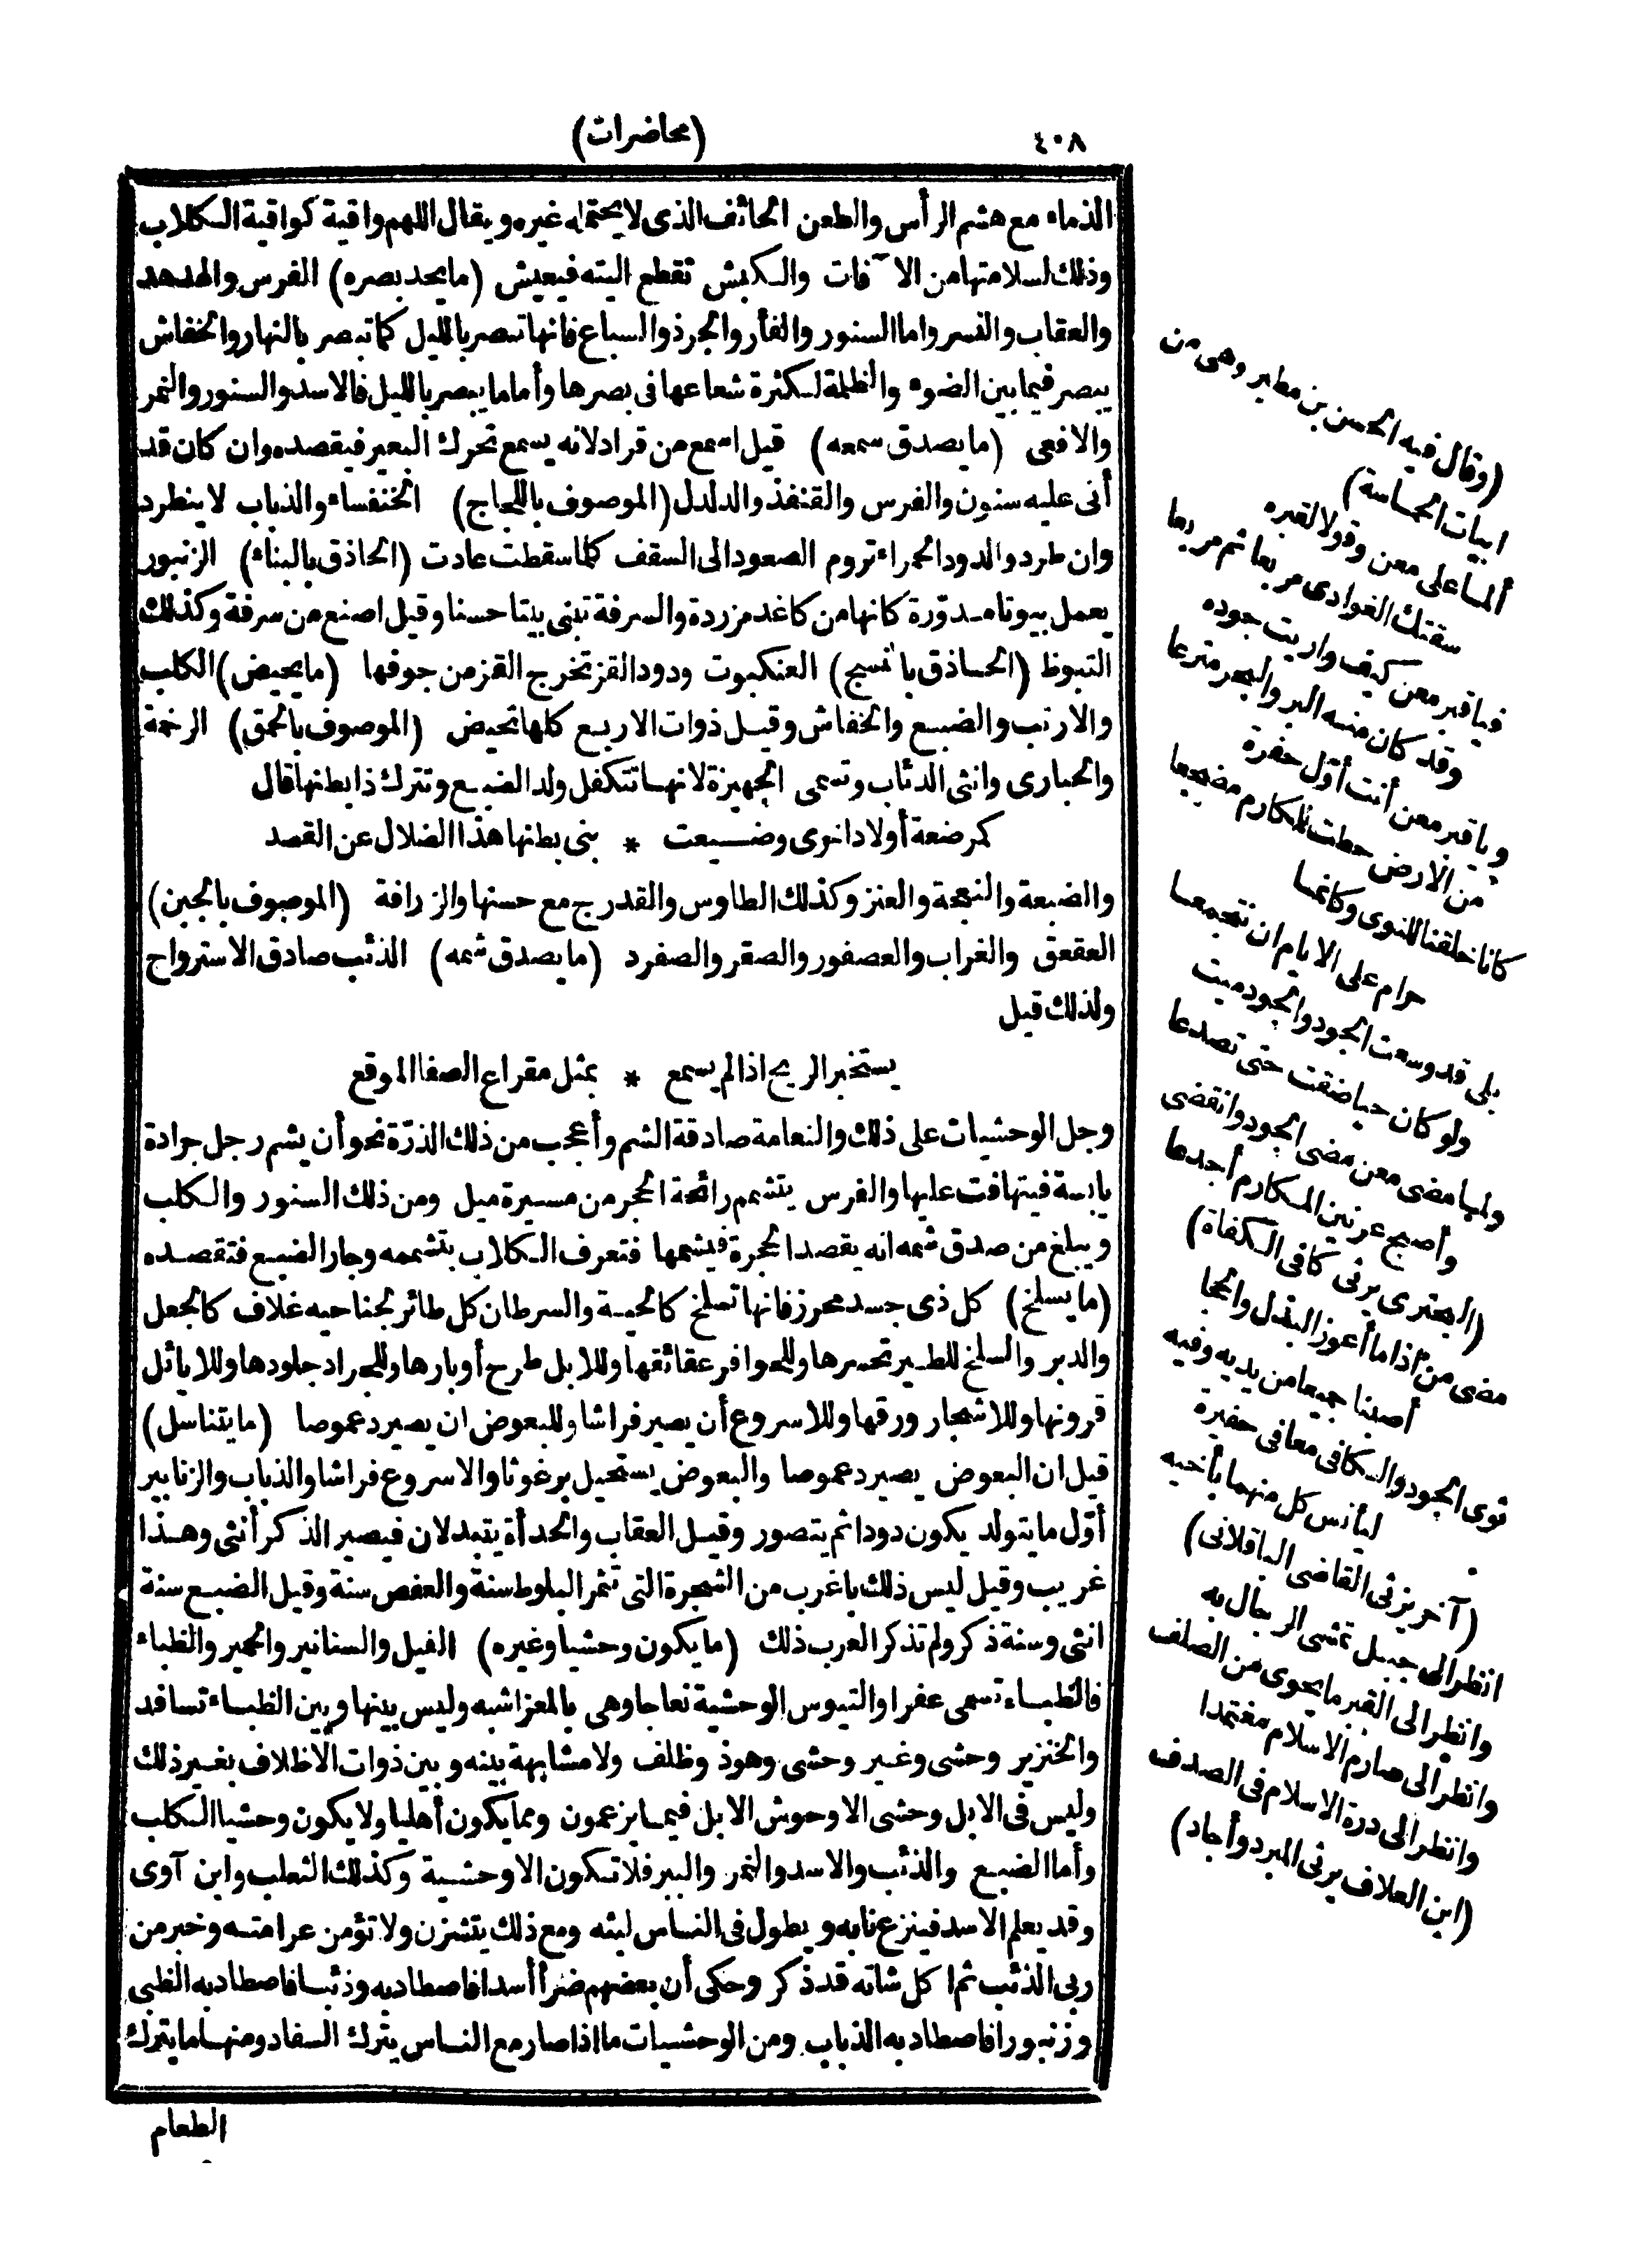 ٤٠٨
(محاضرات)
الذماء مع هشم الرأس والطعن الجائف الذى لا يحتمله غيره ويقال اللهم واقية كواقية الكلاب
وذلك لسلامتها من الآفات والكبش تقطع اليته فيعيش (ما يحد بصره) الفرس والهدهد
والعقاب والنسر واما السنور والفأر والجرذ والسباع فانها تبصر بالليل كما تبصر بالنهار والخفاش
يبصر فيما بين الضوء والظلمة لكثرة شعاعها فى بصرها وأما ما يبصر بالليل فالاسد والسنور والنمر
والافعى (ما يصدق سمعه) قيل اسمع من قراد لانه يسمع تحرك البعير فيقصده وان كان قد
أتى عليه سنون والفرس والقنفذ والدلدل (الموصوف باللجاج) الخنفساء والذباب لا ينطرد
وان طرد والدود الحمراء تروم الصعود الى السقف كلما سقطت عادت (الحاذق بالبناء) الزنبور
يعمل بيوتا مدوّرة كانها من كاغد مزردة والسرفة تبنى بيتا حسنا وقيل اصنع من سرفة وكذلك
التبوط (الحاذق بالنسج) العنكبوت ودود القز تخرج القز من جوفها (ما يحيض) الكلب
والارنب والضبع والخفاش وقيل ذوات الاربع كلها تحيض (الموصوف بالحمق) الرخمة
والحبارى وانثى الذئاب وتسمى الجهيزة لانها تتكفل ولد الضبع وتترك ذا بطنها قال
كمرضعة أولاد اخرى وضيعت * بنى بطنها هذا الضلال عن القصد
والضبعة والنعجة والعنز وكذلك الطاوس والقدرج مع حسنها والزرافة (الموصوف بالجبن)
العقعق والغراب والعصفور والصقر والصفرد (ما يصدق شمه) الذئب صادق الاسترواح
ولذلك قيل
يستخبر الريح اذا لم يسمع * بمثل مقراع الصفا الموقع
وجل الوحشيات على ذلك والنعامة صادقة الشم وأعجب من ذلك الذرّة نحو أن يشم رجل جرادة
يابسة فيتهافت عليها والفرس يتشمم رائحة الحجر من مسيرة ميل ومن ذلك السنور والكلب
ويبلغ من صدق شمه انه يقصد الجحرة فيشمها فتعرف الكلاب بتشممه وجار الضبع فتقصده
(ما يسلخ) كل ذى جسد محرز فانها تسلخ كالحية والسرطان كل طائر لجناحيه غلاف كالجعل
والدبر والسلخ للطير تحسرها وللحوافر عقائقها وللابل طرح أوبارها وللجراد جلودها وللايائل
قرونها وللاشجار ورقها وللاسروع أن يصير فراشا وللبعوض ان يصير دعموصا (ما يتناسل)
قيل ان البعوض يصير دعموصا والبعوض يستحيل برغوثا والاسروع فراشا والذباب والزنابير
أوّل ما يتولد يكون دودا ثم يتصور وقيل العقاب والحدأة يتبدلان فيصير الذكر أنثى وهذا
غريب وقيل ليس ذلك باغرب من الشجرة التى تثمر البلوط سنة والعفص سنة وقيل الضبع سنة
انثى وسنة ذكر ولم تذكر العرب ذلك (ما يكون وحشيا وغيره) الفيل والسنانير والحمير والظباء
فالظباء تسمى عفرا والتيوس الوحشية نعاجا وهى بالمعز اشبه وليس بينها وبين الظباء تسافد
والخنزير وحشى وغير وحشى وهو ذو ظلف ولا مشابهة بينه وبين ذوات الاظلاف بغير ذلك
وليس فى الابل وحشى الا وحوش الابل فيما يزعمون ومما يكون أهليا ولا يكون وحشيا الكلب
وأما الضبع والذئب والاسد والنمر والببر فلا تكون الا وحشية وكذلك الثعلب وابن آوى
وقد يعلم الاسد فينزع نابه ويطول فى الناس لبثه ومع ذلك يتشزن ولا تؤمن عرامته وخبر من
ربى الذئب ثم اكل شاته قد ذكر وحكى أن بعضهم ضرأ أسدا فاصطاد به وذئبا فاصطاد به الظبى
وزنبورا فاصطاد به الذباب ومن الوحشيات ما اذا صار مع الناس يترك السفاد ومنها ما يترك
الطعام
(وقال فيه الحسن بن مطير وهى من
ابيات الحماسة)
ألما على معن وقولا لقبره
سقتك الغوادى مربعا ثم مربعا
فيا قبر معن كيف واريت جوده
وقد كان منه البر والبحر مترعا
ويا قبر معن أنت أوّل حفرة
من الارض حطت للمكارم مضجعا
كانا خلقنا للنوى وكانما
حرام على الايام ان نتجمعا
بلى قد وسعت الجود والجود ميت
ولو كان حيا ضقت حتى تصدعا
ولما مضى معن مضى الجود وانقضى
وأصبح عرنين المكارم أجدعا
(البحترى يرثى كافى الكفاة)
مضى من اذا ما أعوز البذل والحجا
أصبنا جميعا من يديه وفيه
ثوى الجود والكافى معا فى حفيرة
ليأنس كل منهما بأخيه
(آخر يرثى القاضى الباقلانى)
انظر الى جبل تمشى الرجال به
وانظر الى القبر ما يحوى من الصلف
وانظر الى صارم الاسلام مغتمدا
وانظر الى درة الاسلام فى الصدف
(ابن العلاف يرثى المبرد وأجاد)